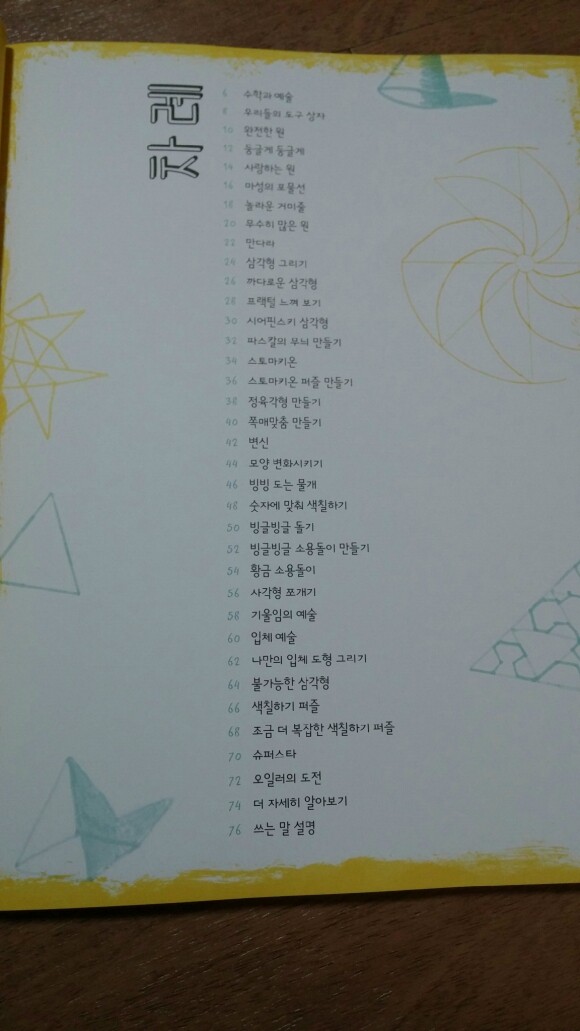 차례
6 수학과 예술
8 우리들의 도구 상자
10 완전한 원
12 둥글게 둥글게
14 사랑하는 원
16 마성의 포물선
18 놀라운 거미줄
20 무수히 많은 원
22 만다라
24 삼각형 그리기
26 까다로운 삼각형
28 프랙털 느껴 보기
30 시어핀스키 삼각형
32 파스칼의 무늬 만들기
34 스토마키온
36 스토마키온 퍼즐 만들기
38 정육각형 만들기
40 쪽매맞춤 만들기
42 변신
44 모양 변화시키기
46 빙빙 도는 물개
48 숫자에 맞춰 색칠하기
50 빙글빙글 돌기
52 빙글빙글 소용돌이 만들기
54 황금 소용돌이
56 사각형 쪼개기
58 기울임의 예술
60 입체 예술
62 나만의 입체 도형 그리기
64 불가능한 삼각형
66 색칠하기 퍼즐
68 조금 더 복잡한 색칠하기 퍼즐
70 슈퍼스타
72 오일러의 도전
74 더 자세히 알아보기
76 쓰는 말 설명